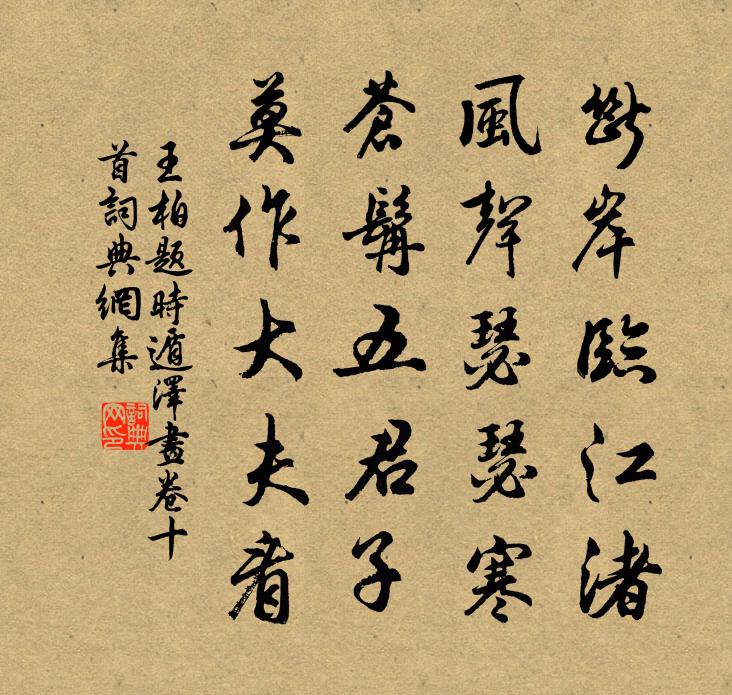 斷岸臨江渚
風聲瑟瑟寒
蒼髯五君子
莫作大夫看
王柏題時遁澤畫卷十
首詞典網集
詞典網印